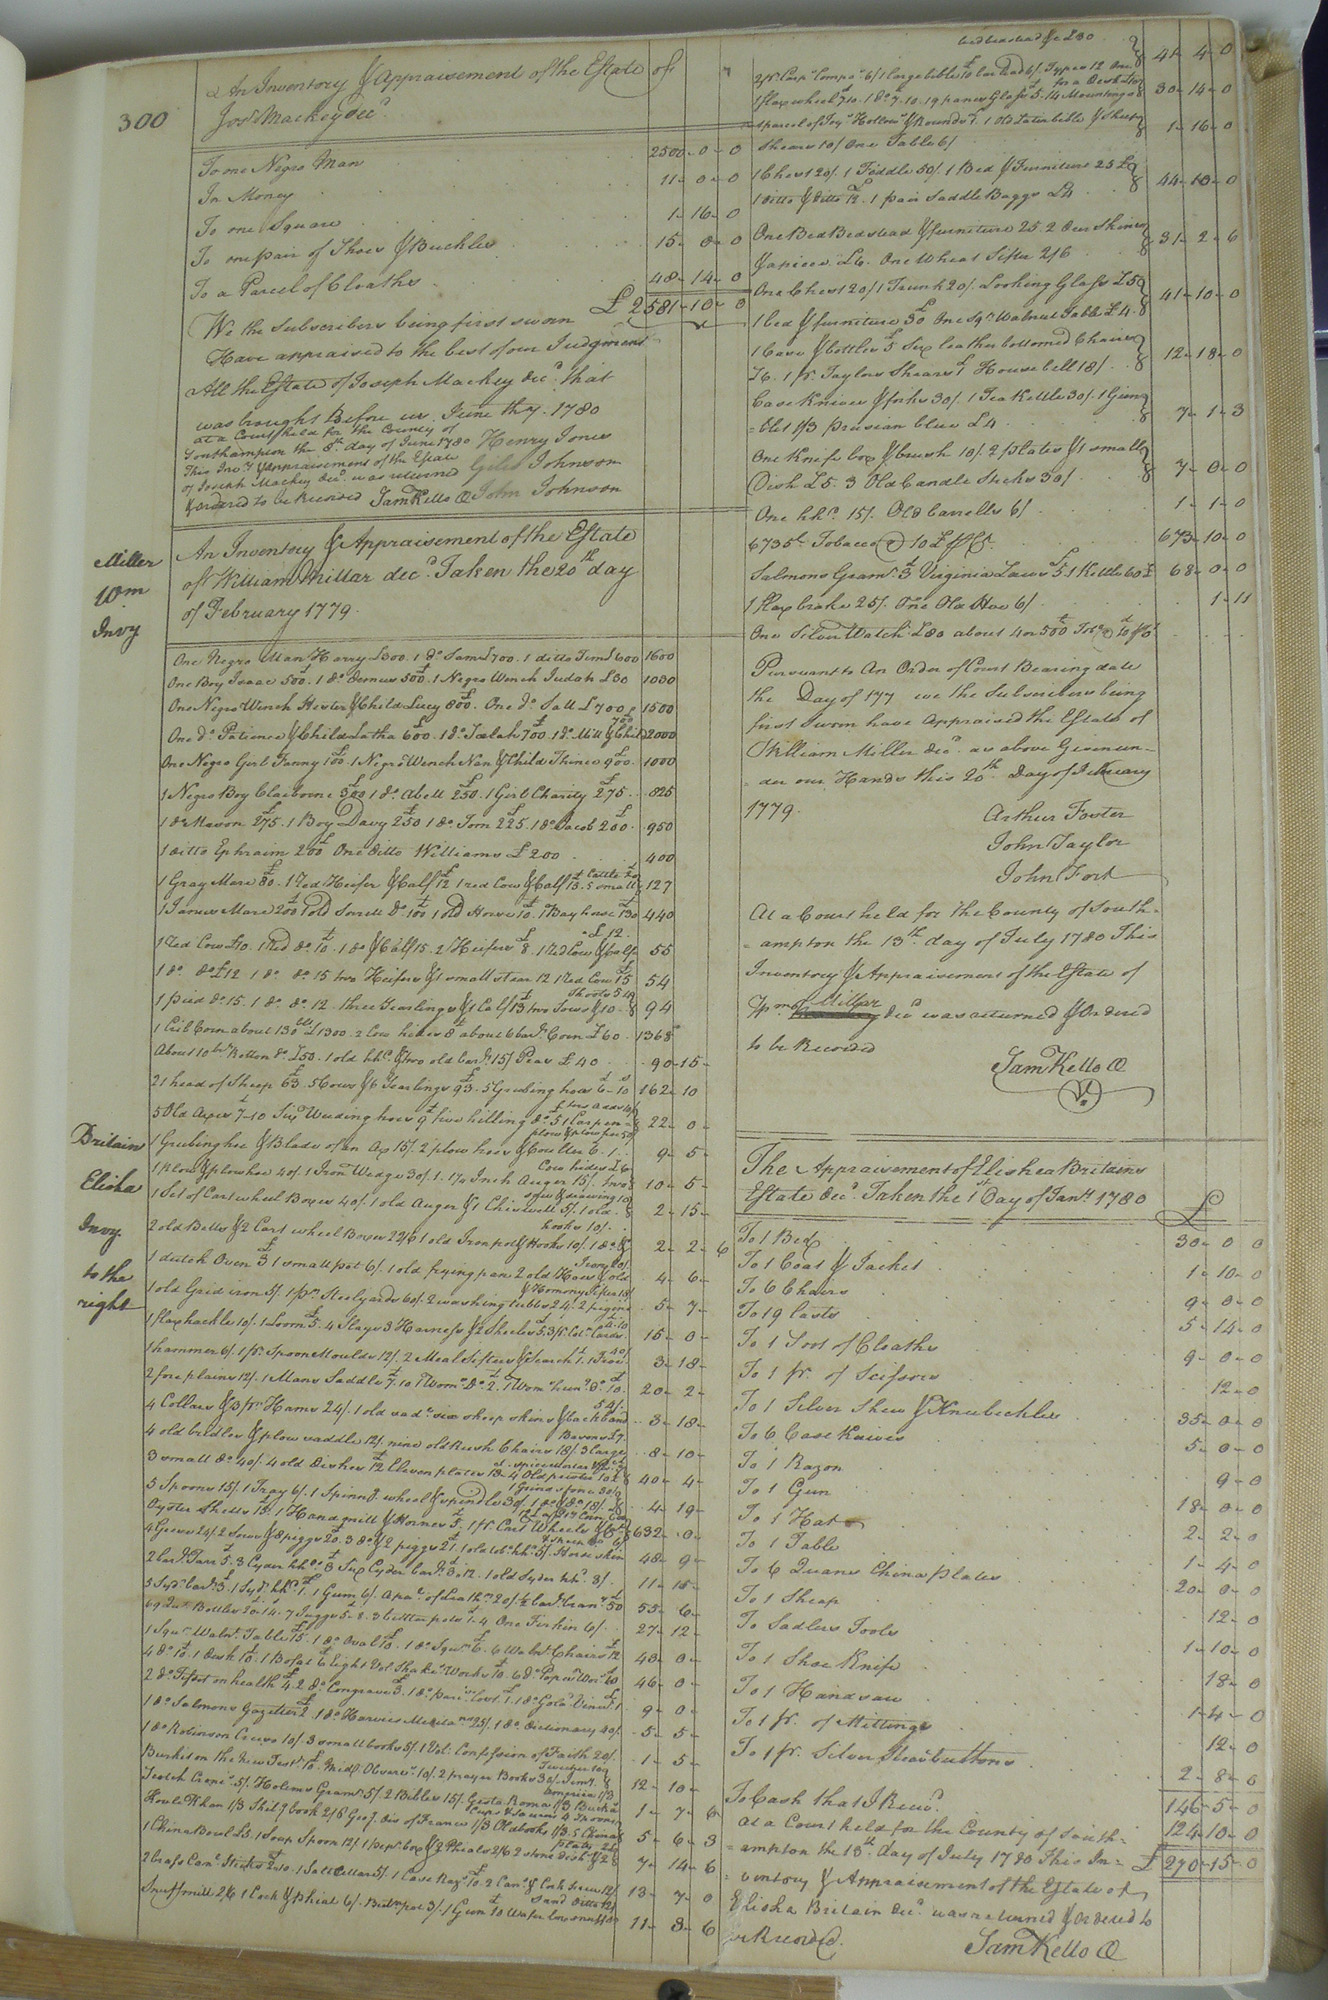 300
An Inventory & Appraisement of the Estate of
Jos. Mackey decd.
To one Negro Man 2500-0-0
In Money 11-0-0
To one Square 1-16-0
To one pair of Shoes & Buckles 15-0-0
To a Parcel of Cloaths 48-14-0
£2581-10-0
We the Subscribers being first sworn
Have appraised to the best of our Judgment
All the Estate of Joseph Mackey decd. that
was brought Before us June th 7. 1780
at a Court held for the County of
Southampton the 8th day of June 1780 Henry Jones
This Invy. & Appraisement of the Estate
of Joseph Mackey decd. was returned Giles Johnson
& ordered to be Recorded Sam Kello Cl John Johnson
Miller
Wm
Invy
An Inventory & Appraisement of the Estate
of William Millar decd. Taken the 20th day
of February 1779.
One Negro Man Harry £300. 1 do. Sam £700. 1 ditto Tom £600 1600
One Boy Isaac 500. 1 do. 500. 1 Negro Wench Judah £30 1030
One Negro Wench Hester & Child Lucy 800. One do. Sall £700 1500
One do. Patience & Child Latha 600. 1 do. 700. 1 do. Mill & Child 700 2000
One Negro Girl Fanny 100. 1 Negro Wench Nan & Child 900. 1000
1 Negro Boy Claiborne 300 1 do. Abell 250. 1 Girl Charity 275. 825
1 do. Mason 275. 1 Boy Davy 250 1 do. Tom 225. 1 do. Jacob 200. 950
1 ditto Ephraim 200 One ditto Williams £200 400
1 Gray Mare 80. 1 Red Heifer & Calf 12 1 red Cow & Calf 13. 5 small Cattle 127
Mare 200 1 old Sorrell do. 100 1 old Horse 10. 1 Bay horse 130 440
1 Red Cow £10. 1 Red do. 10. 1 do. & Calf 15. 2 Heifers 8. 1 Red Cow & Calf £12. 55
1 do. do. £12 1 do. do. 15 two Heifers & 1 small steer 12 1 Red Cow 15 54
1 pied do. 15. 1 do. do. 12 three Yearlings & 1 Calf 13 two Sows & 10 Shoats 94
1 Crib Corn about 130 bls £1300. 2 Cow hides 8 about 6 barls. Corn £60. 1368
About 10 brs Rotton do. £50. 1 old hhd. & two old barls. 15/ Peas £40 90-15-
21 head of Sheep 63. 5 Cows & 6 Yearlings 93. 5 Grubing hoes 6-10 162-10
5 Old Axes 7-10 Six Weeding hoes 9 five hilling do. 5 22-0-
1 Grubing hoe & Blade of an Ax 15/. 2 plow hoes & Coulter 6. 1 9-5-
1 plow & plow hoe 40/. 1 Iron Wedge 30/. 1 1/4 Inch Auger 15/. two Cow hides £6 10-5-
1 Set of Cart wheel Boxes 40/. 1 old Auger & 1 Chissell 5/. 1 old 2-15-
2 old Bells & 2 Cart wheel Boxes 22/6 1 old Iron pot & Hooks 10/. 1 do. & hooks 10/. 2-2-6
1 dutch Oven 3 1 small pot 6/. 1 old frying pan 2 old Hoes & old Iron 20/ 4-6-
1 old Grid iron 5/. 1 pr. Steelyards 60/. 2 washing tubbs 24/. 2 piggins & Homony Sifter 18/ 5-7-
1 flax hackle 10/. 1 Loom 5. 4 Slays 3 Harness & 2 Shetles 5. 3 pr. Cotn. Cards 15-0-
1 hammer 6/. 1 pr. Spoon Moulds 12/. 2 Meal Sifters & Search 1. 3-18-
2 fore plains 12/. 1 Mans Saddle 7.10 20-2-
4 Collars & 3 pr. Hams 24/. 1 old sadl. six sheep skins & backband 54/. 3-18-
4 old bridles & plow saddle 12/. nine old Rush Chairs 18/. 3 large Basons £7. 8-10-
3 small do. 40/. 4 old dishes 12 Eleven plates 18 4 Old pewter 10 40-4-
5 Spoons 15/. 1 Tray 6/. 1 Spinng. wheel & spindle 30/. 1 do. & do. 18/. 1 Grind stone 30/ 4-19-
Oyster Shells 15. 1 Hand mill & Horses 5. 1 pr. Cart Wheels 632-0-
4 Geese 24/. 2 Sows & 8 piggs 20. 3 do. & 2 piggs 21. Horse skin 48-9-
2 barls. Tarr 5. 3 Cyder hhds. 8 Six Cyder barls. 3.12. 1 old Syder hhd. 3/. 11-15-
55-6-
69 Qut. Bottles 20.14. 7 Juggs 5-8. 3 butter pots 1-4 One Firkin 6/. 27-12-
1 Sqr. Walnt. Table 15. 1 do. Oval 10. 1 do. Sqr. 6. 6 Walnt. Chairs 12 43-0-
4 do. 10. 1 Desk 10. 1 Bofat 6 Eight Vol. Shaks. Works 10. 6 do. Popes Wors. 10 46-0-
2 do. Tissot on health 4. 2 do. Congrave 3. 9-0-
1 do. Salmons Gazetteer 2. 1 do. Harvies Meditans. 25/. 1 do. dictionary 40/. 5-5-
1 do. Robinson Cruso 10/. 3 small books 5/. 1 Vol. Confession of Faith 20/. 1-5-
Burkit on the New Test. 10. Midl. Observr. 10/. 2 prayer Books 30/. 12-10-
5/. Holems Gramr. 5/. 2 Bibles 15/. Gesta Roma 1/3 1-7-6
Koule Khan 1/3 book 2/6 of France 1/3 Old books 1/3 5 China plates 5-6-3
1 China Bowl £3. 1 Soup Spoon 12/. 1 pepr. box & 3 Phials 2/6 2 stone dish & 28 7-14-6
2 brass Canl. Sticks 2.10. 1 Salt Cellar 5/. 1 Case Razs. 10. 2 Cans. & Cork screw 12/ 13-7-0
Snuff mill 2/6 1 Cock & Phial 6/. 3/. 1 Gun 10 Wafer box snuff do. 11-3-6
Britain
Elisha
Invy.
to the
right
bedstead &c £30 41-4-0
2 pr. Carpr. Compas 6/ 1 large bible 10 30-14-0
1 flax wheel 7.10. 1 do. 7.10. 19 panes Glass 5. 14 Mountings
a parcel of Joys. Hollows & Rounds 1. 1 Old Later bible & Sheep 1-16-0
Shears 10/ One Table 6/
1 Chest 20/. 1 Fiddle 50/. 1 Bed & Furniture 25 £ 44-10-0
1 ditto & ditto 12. 1 pair Saddle Baggs £4
One Bed Bedstead & furniture 25. 2 Deer Skins 31-2-6
£6. One Wheat Sifter 2/6
One Chest 20/ 1 Trunk 20/. Looking Glass £5 41-10-0
1 bed & furniture 30 One Sqr. Walnut Table £4.
1 Case & bottles 5 Six leather bottomed Chairs 12-18-0
£6. 1 pr. Taylors Shears 1. House bell 18/.
Case Knives & forks 30/. 1 Tea Kettle 30/. 1 Gim 7-1-3
=blet 1/3 prusian blue £4
One Knife box & brush 10/. 2 plates & 1 small 7-0-0
Dish £5. 3 Old Candle Sticks 30/
One hhd. 15/. Old barrells 6/ 1-1-0
6735 lb Tobacco @ 10 £ 673-10-0
Salmons Gramr. 3 Virginia Laws 5. 1 Kettle 60 £ 68-0-0
1 flax brake 25/. One Old Hoe 6/ 1-11
One Silver Watch £80 about 4 or 500 Tobo. @
Pursuant to An Order of Court Bearing date
the Day of 177 we the Subscribers being
first sworn have Appraised the Estate of
William Miller decd. as above Given un-
-der our Hands this 20th Day of February
1779.
Arthur Foster
John Taylor
John Fort
At a Court held for the County of South-
=ampton the 13th day of July 1780 This
Inventory & Appraisement of the Estate of
Wm. Millar decd. was returned & Ordered
to be Recorded
Sam Kello Cl
The Appraisement of Elisha Britains
Estate decd. Taken the 1st Day of Jany. 1780 £
To 1 Bed 30-0 0
To 1 Coat & Jacket 1-10-0
To 6 Chairs 9-0-0
To 19 lasts 5-14-0
To 1 Soot of Cloaths 9-0-0
To 1 pr. of Scissors 12-0
To 1 Silver Shew & Knebuckles 35-0-0
To 6 Case Knives 5-0-0
To 1 Razon 9-0
To 1 Gun 18-0-0
To 1 Hat 2-2-0
To 1 Table 1-4-0
To 6 Queens China plates 20-0-0
To 1 Sheap 12-0
To Sadlers Tools 1-10-0
To 1 Shoe Knife 18-0
To 1 Handsaw 1-4-0
To 1 pr. of Mittings 12-0
To 1 pr. Silver Sleeвbuttons 2-8-0
146-5-0
To Cash that I Recd. 124-10-0
£270-15-0
At a Court held for the County of South-
=ampton the 13th day of July 1780 This In-
=ventory & Appraisement of the Estate of
Elisha Britain decd. was returned & Ordered to
be Recorded.
Sam Kello Cl